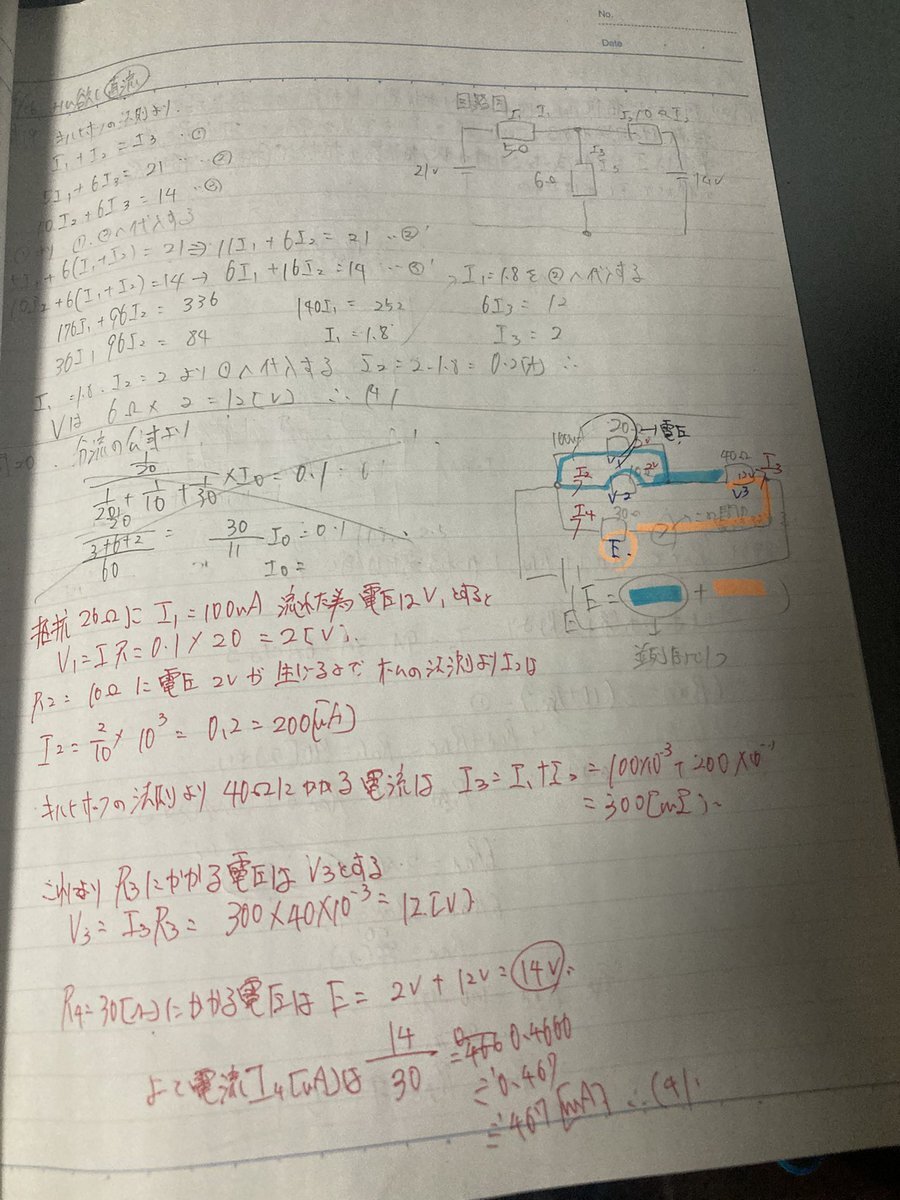 No.
Date
直流
キルヒホッフの法則より.
I₁ + I₂ = I₃ …①
5I₁ + 6I₃ = 21 …②
10I₂ + 6I₃ = 14 …③
①, ②へ代入する
5I₁ + 6(I₁+I₂) = 21 ⇒ 11I₁ + 6I₂ = 21 …②'
10I₂ + 6(I₁+I₂) = 14 → 6I₁ + 16I₂ = 14 …③'
176I₁ + 96I₂ = 336
36I₁ 96I₂ = 84
140I₁ = 252
I₁ = 1.8
I₁=1.8を②へ代入する
6I₃ = 12
I₃ = 2
I₁ = 1.8. I₂ = 2 より①へ代入する I₂ = 2-1.8 = 0.2(A) ∴
Vは 6Ω × 2 = 12[V] ∴ (4)
回路図
I₁
5Ω
10Ω I₂
21V
I₃
6Ω
14V
分流の公式より
1/30
1/20 + 1/10 + 1/30 × I₀ = 0.1
30
3+6+2
60
=
30/11 I₀ = 0.1
I₀ =
20
→電圧
V1
I₂
10Ω
V2
40Ω
I₃
12V
V3
I₄
30Ω
E
E
E = +
抵抗20Ωに I₁=100mA 流れた為 電圧は V₁とすると
V₁=IR=0.1×20 = 2[V].
R₂= 10Ωに電圧 2Vが生じるので オームの法則よりI₂は
I₂= 2/10 × 10³ = 0.2 = 200[mA]
キルヒホッフの法則より 40Ωにかかる電流は I₃=I₁+I₂ = 100×10⁻³+200×10⁻³
= 300[mA].
これより R₃にかかる電圧は V₃とする
V₃= I₃R₃ = 300×40×10⁻³ = 12[V]
R₄=30[Ω]にかかる電圧は E = 2V + 12V = 14V.
よって電流I₄[mA]は 14/30 = 0.4660
≒ 0.467
≒ 467[mA] ∴(4).